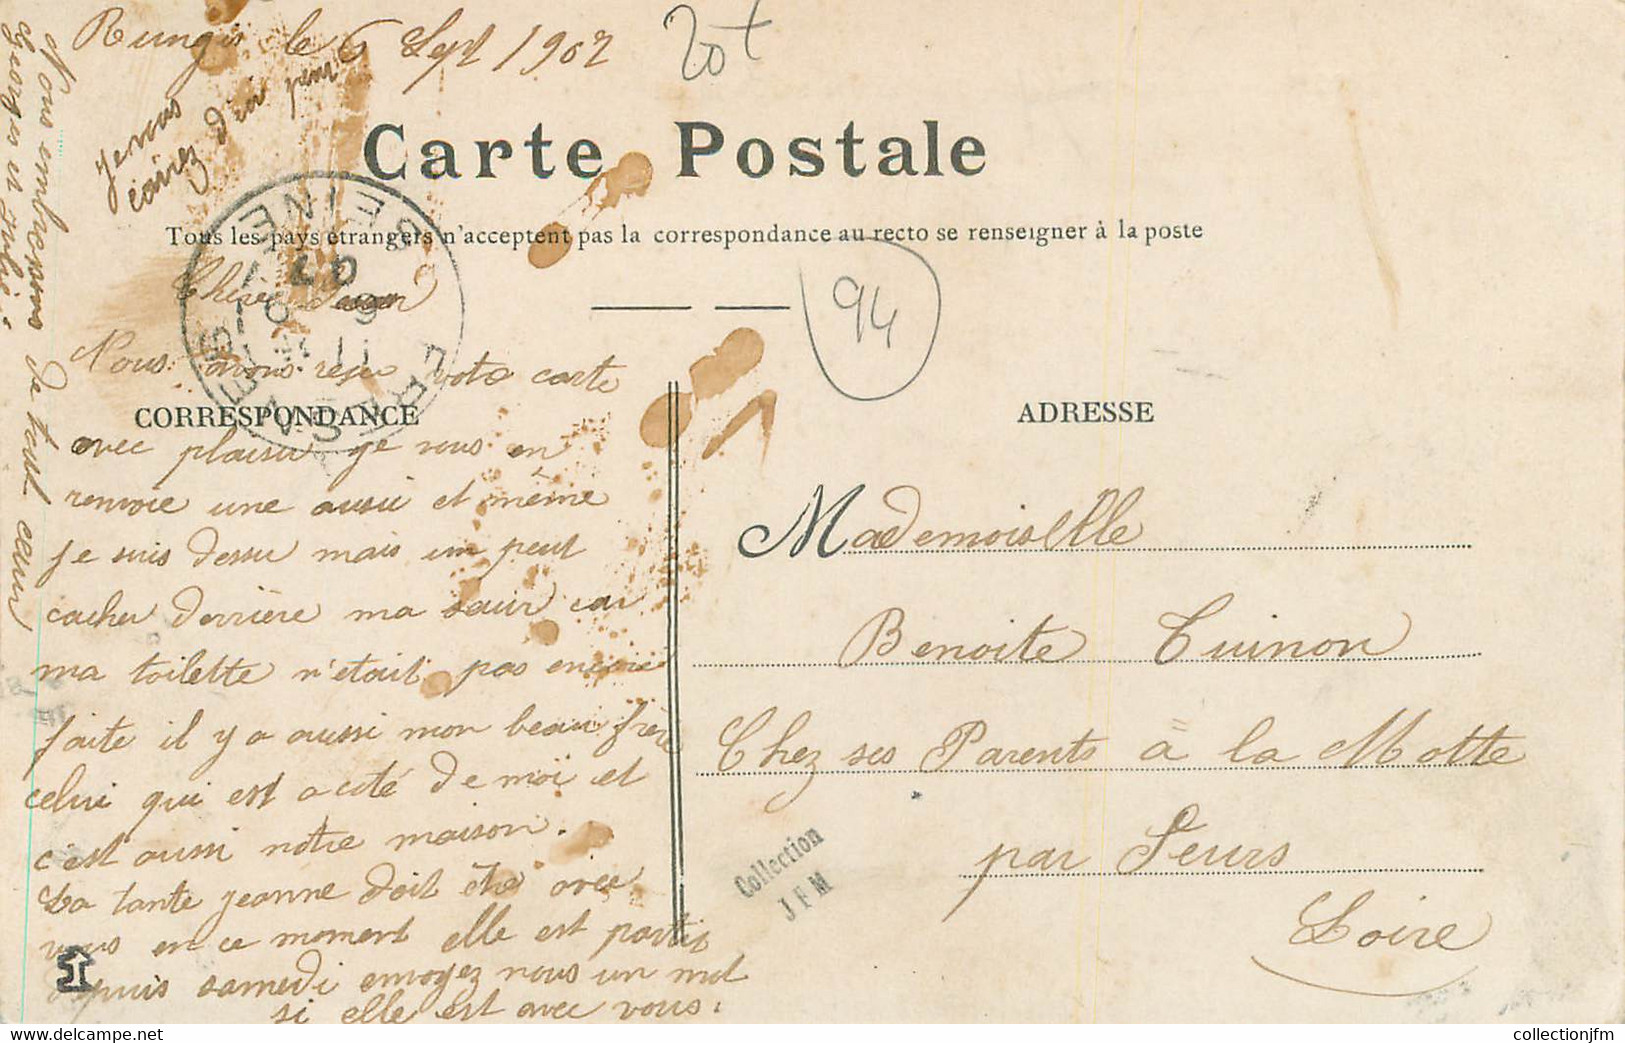 Rungis le 6 Sept 1907
20+
Je vous
écrirez d'ici peu
Carte Postale
Tous les pays étrangers n'acceptent pas la correspondance au recto se renseigner à la poste
94
Chère
Nous avons reçu vote carte
CORRESPONDANCE
avec plaisir je vous en
renvoie une aussi et même
je suis dessu mais un peut
cacher derrière ma sœur car
ma toilette n'était pas encore
faite il y a aussi mon beau frère
celui qui est a cote de moï et
c'est aussi notre maison.
La tante jeanne doit être avec
vous en ce moment elle est partit
depuis samedi envoyez nous un mot
si elle est avec vous.
Nous embrassons de tout cœur
Georges et
ADRESSE
Mademoiselle
Benoite Guinon
Chez ses Parents à la Motte
par Feurs
Loire
FRESNES
SEINE
Collection
JFM
collectionjfm